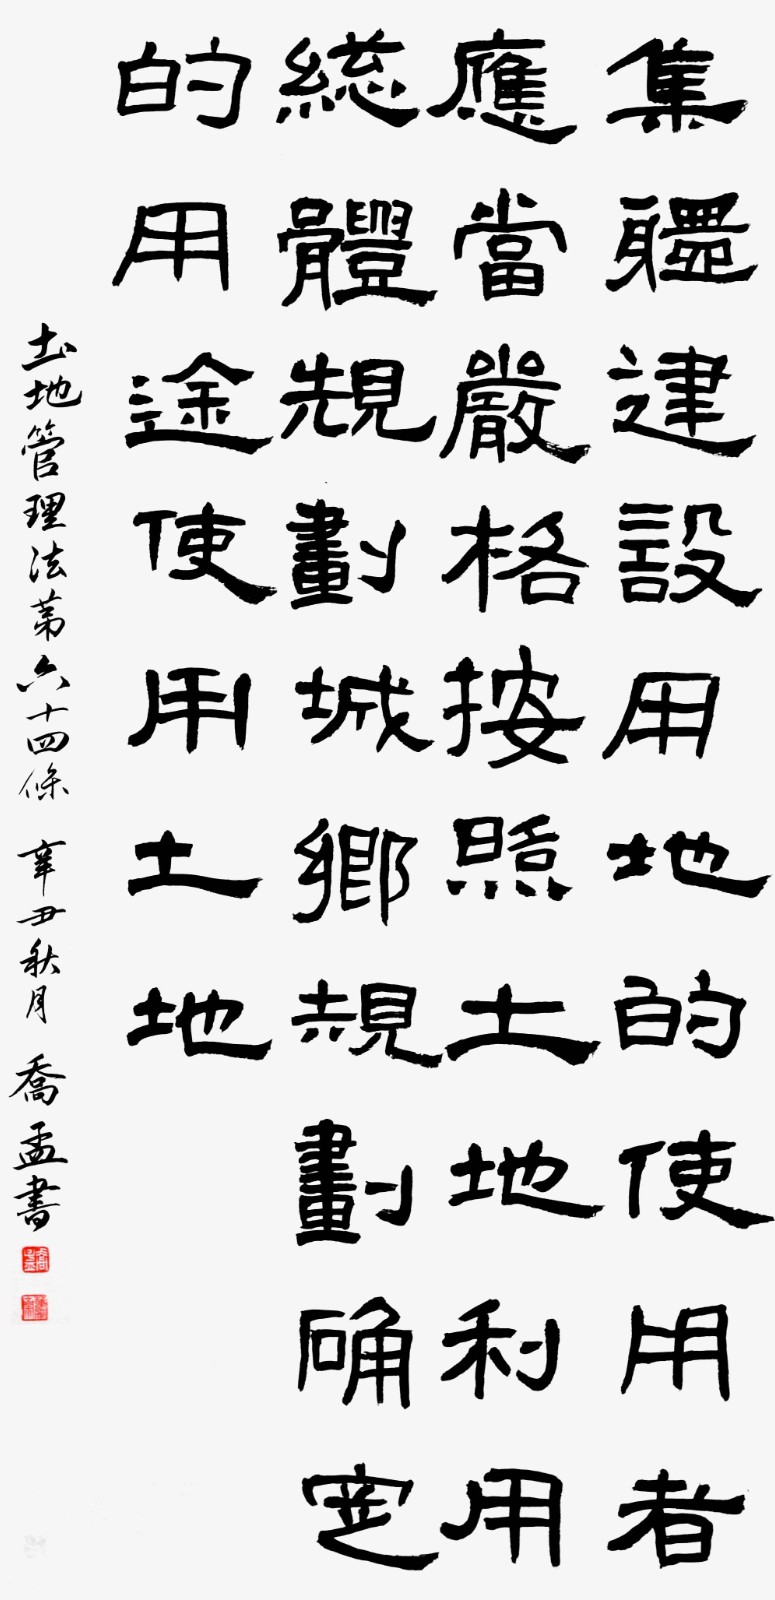 集體建設用地的使用者
應當嚴格按照土地利用
總體規劃城鄉規劃確定
的用途使用土地
土地管理法第六十四條 辛丑秋月 喬孟書